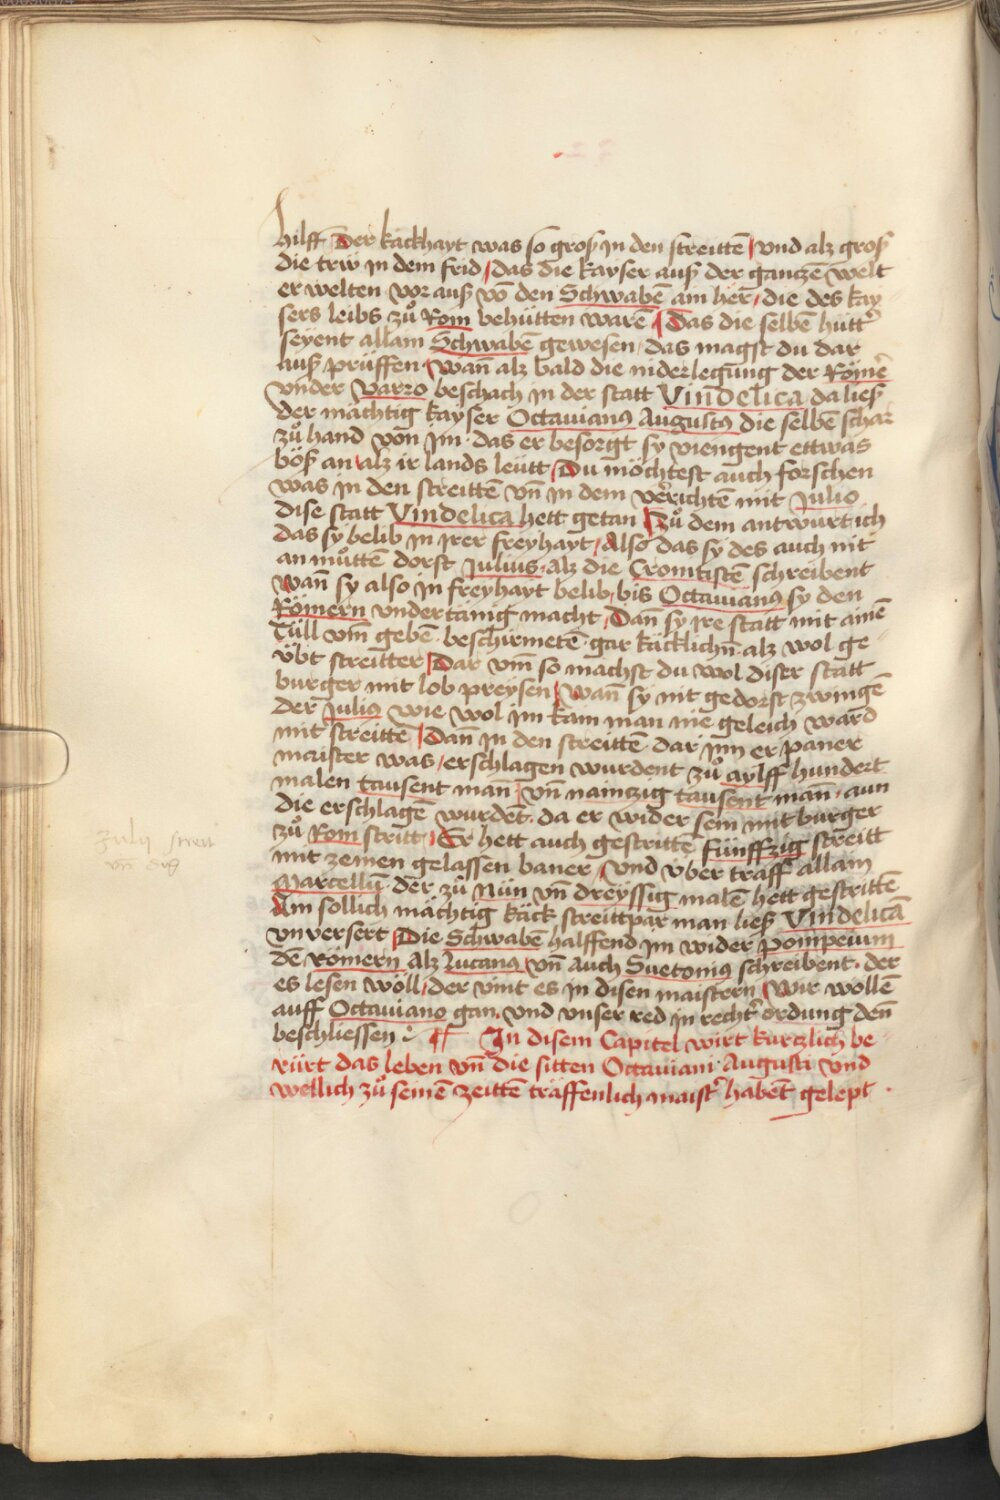 hilff Der käckhayt was so groß in den streittē / vnd alz groß
die trw in dem frid / das die kayser auß der gantzē welt
er welten vor auß vō den Schwabē am her / die des kay
sers leibs zů Rom behütten warē / Das die selbē hütt
seyent allain Schwabē gewesen das magst du dar
auß prüffen / Wañ alz bald die niderlegung der Römer
vnder Varro beschach in der statt Vindelica da ließ
der mächtig kayser Octauianus Augustus die selbē schar
zů hand von im das er besorgt sy viengent ettwas
böß an / alz ir lands leütt / Du möchtest auch forschen
was in den streittē vñ in dem verrichtē mit Julio
dise statt Vindelica hett getan / Zů dem antwurt ich
das sy belib in irer freyhayt / Also das sy des auch nit
an můttē dorst Julius alz die Cronistē schreibent
Wañ sy also in freyhayt belib / bis Octauianus sy den
Römern vndertänig macht / Dañ sy ire statt mit ainē
Tüll vm̄ gebē beschirmetē gar käcklichñ alz wol ge
übt streitter / Dar vm̄ so machst du wol diser statt
burger mit lob preysen / Wañ sy nit gedorst zwingē
der Julius wie wol im kain man nie geleich ward
mit streittē / Dañ in den streittē dar inn er paner
maister was / erschlagen wurdent zů aylff hundert
malen tausent mañ / vñ nainzig tausent mañ aun
die erschlagē wurdēt da er wider sein mit burger
zů Rom stritt / Er hett auch gestrittē fünffzig streitt
mit zemen gelassen baner / vnd über traff allain
Marcellū der zů Nün vñ dreyssig malē hett gestrittē
Ain sollich mächtig käck streittpar man ließ Vindelicā
vnversert / Die Schwabē halffend im wider Pompeium
dē Römern alz Lucanus vñ auch Suetonius schreibent der
es lesen wöll / der vint es in disen maistern / Wir wollē
auff Octauiano gan vnd vnser red in recht ordung den
beschliessen ¶ In disem Capitel wirt kurczlich be
rürt das leben vñ die sitten Octauiani Augusti vnd
wellich zů seinē zeittē träffenlich maist habēt gelept
Julij streit